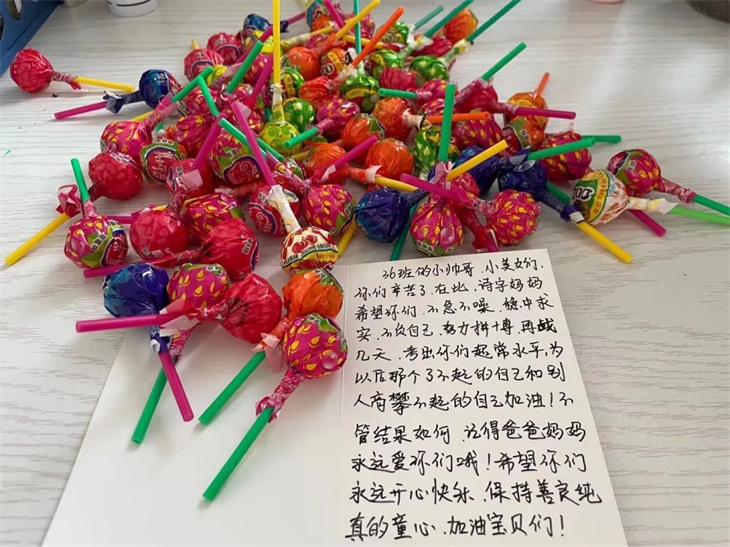 36班的小帅哥、小美女们,
你们辛苦了、在此、诗宇妈妈
希望你们、不急不噪、稳中求
实、不负自己、努力拼搏、再战
几天、考出你们超常水平,为
以后那个了不起的自己和别
人高攀不起的自己加油!不
管结果如何、记得爸爸妈妈
永远爱你们哦!希望你们
永远开心快乐、保持善良纯
真的童心、加油宝贝们!